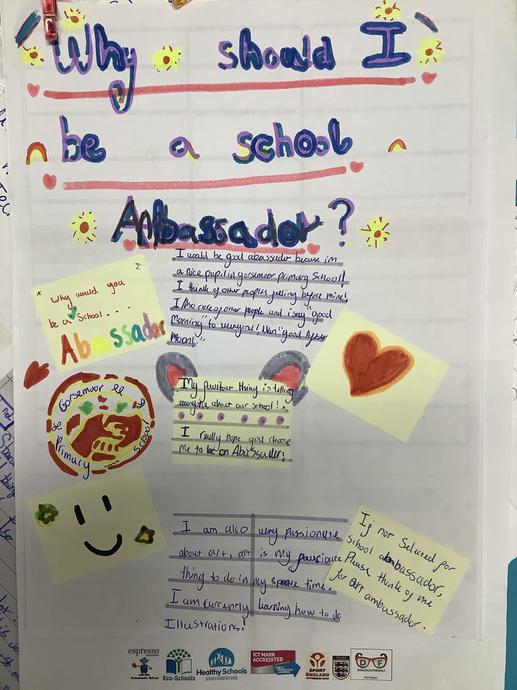 Why should I
be a school
Ambassador?
I would be good abassador becuse im
a nice pupil in gorsemoor primary School!
I think of other peoples felling before mine!
I Also care of other people and i say "good
morning" to everyone! Then "good
Noon!".
Why would you
be a School....
Abassador
Gorsemoor
Primary School
My favitour thing is telling
everyone about our school!
I really hope you choose
me to be an Abassader!
I am also very passionate
about art, art is my favourite
thing to do in my speare time.
I am currently learning how to do
Illustrations!
If not Selected for
school ambassador,
Please think of me
for art ambassador.
espresso
Ambassador School
Eco-Schools
Healthy Schools
ICT MARK
ACCREDITED
SPORT
ENGLAND
D F